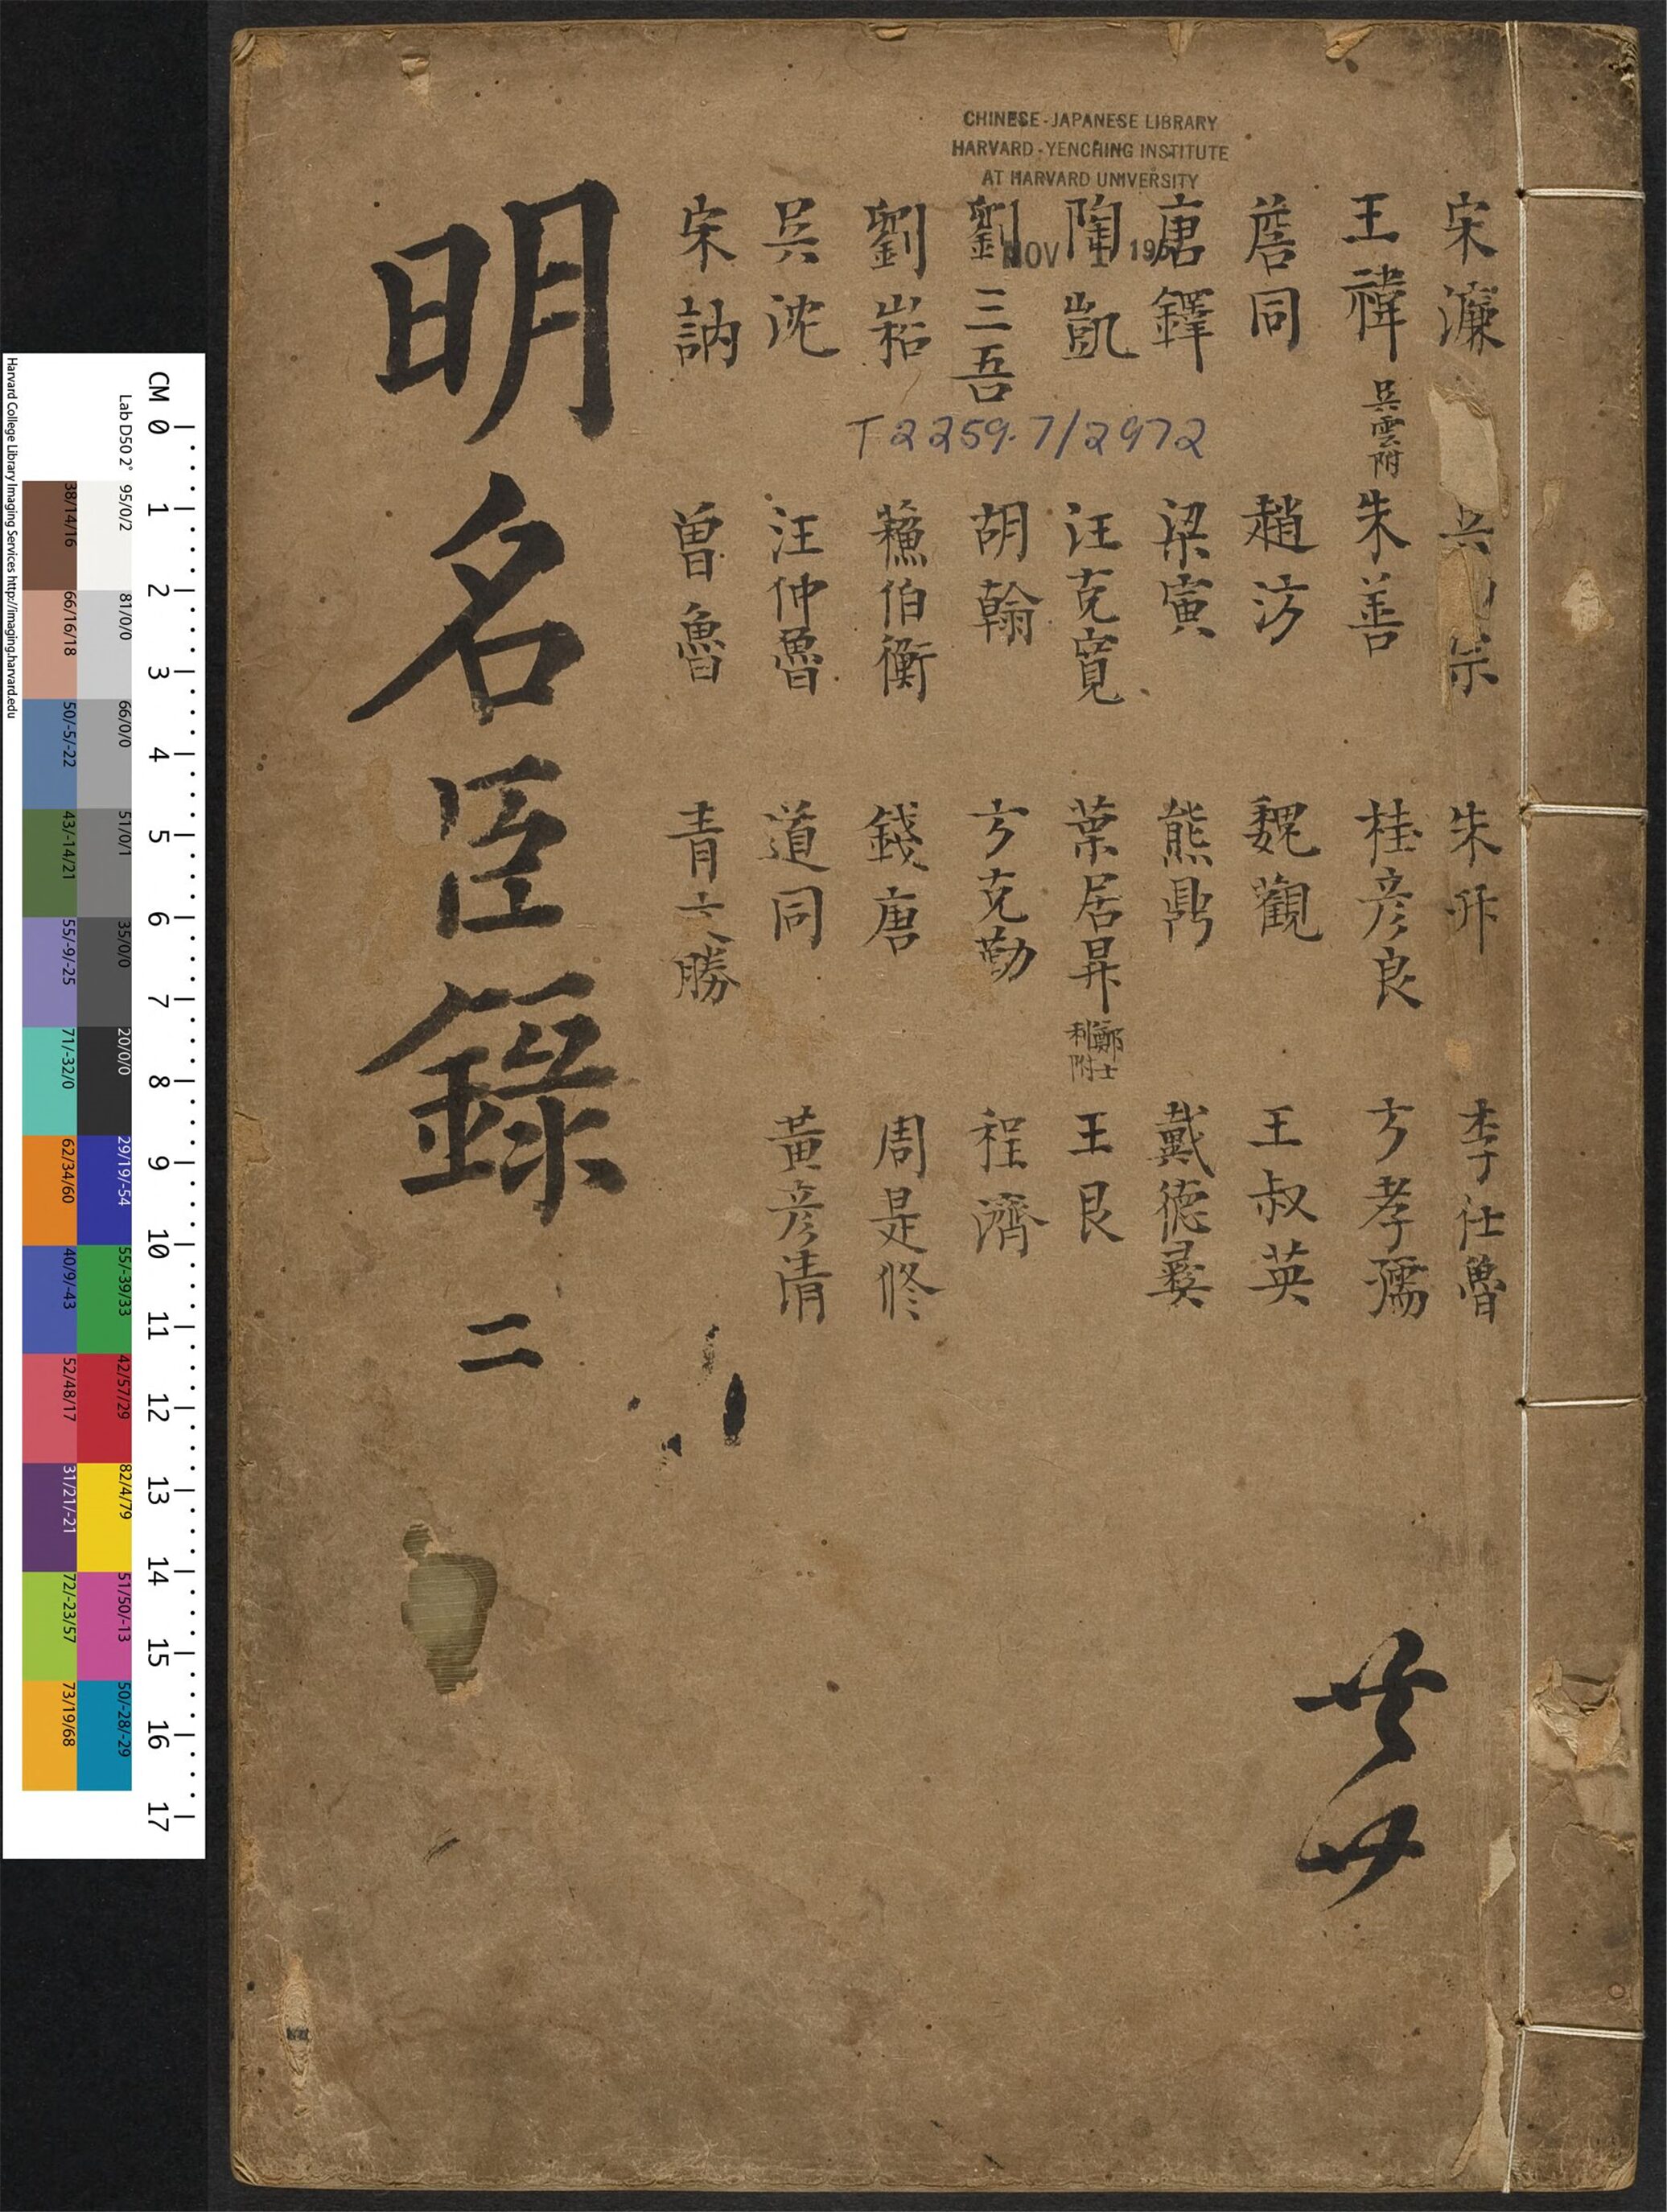 CHINESE-JAPANESE LIBRARY
HARVARD-YENCHING INSTITUTE
AT HARVARD UNIVERSITY
NOV 1 19
T2259.7/2972
宋濂
王禕 吳雲附
詹同
唐鐸
陶凱
劉三吾
劉崧
吳沈
宋訥
朱善
趙汸
梁寅
汪克寬
胡翰
蘓伯衡
汪仲魯
曾魯
朱升
桂彦良
魏觀
熊鼎
葉居昇 鄭士利附
方克勤
錢唐
道同
青文勝
李仕魯
方孝孺
王叔英
戴德彜
王艮
程濟
周是修
黃彦清
明名臣錄 二
Harvard College Library Imaging Services http://imaging.harvard.edu
Lab D50 2°
CM 0 1 2 3 4 5 6 7 8 9 10 11 12 13 14 15 16 17
95/0/2 81/0/0 66/0/0 51/0/1 35/0/0 20/0/0 29/19/-54 55/-39/33 42/57/29 82/4/79 51/50/-13 50/-28/-29
38/14/16 66/16/18 50/-5/-22 43/-14/21 55/-9/-25 71/-32/0 62/34/60 40/9/-43 52/48/17 31/21/-21 72/-23/57 73/19/68